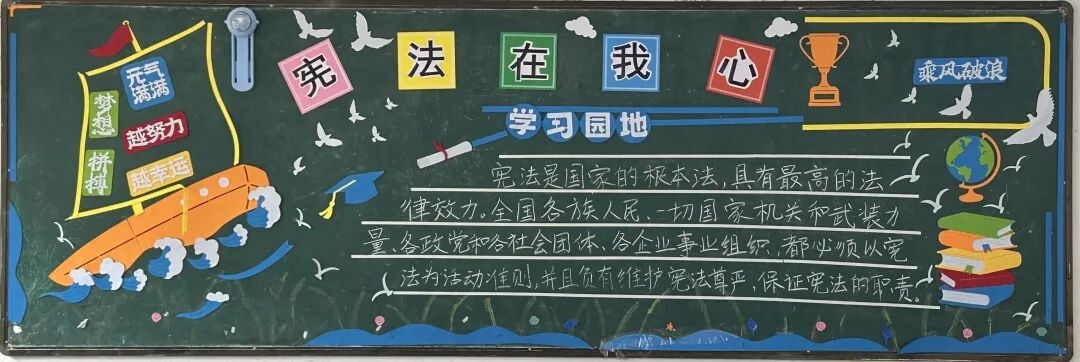 宪法在我心
乘风破浪
元气
满满
梦想
越努力
拼搏
越幸运
学习园地
宪法是国家的根本法,具有最高的法
律效力。全国各族人民、一切国家机关和武装力
量、各政党和各社会团体、各企业事业组织,都必须以宪
法为活动准则,并且负有维护宪法尊严,保证宪法的职责。